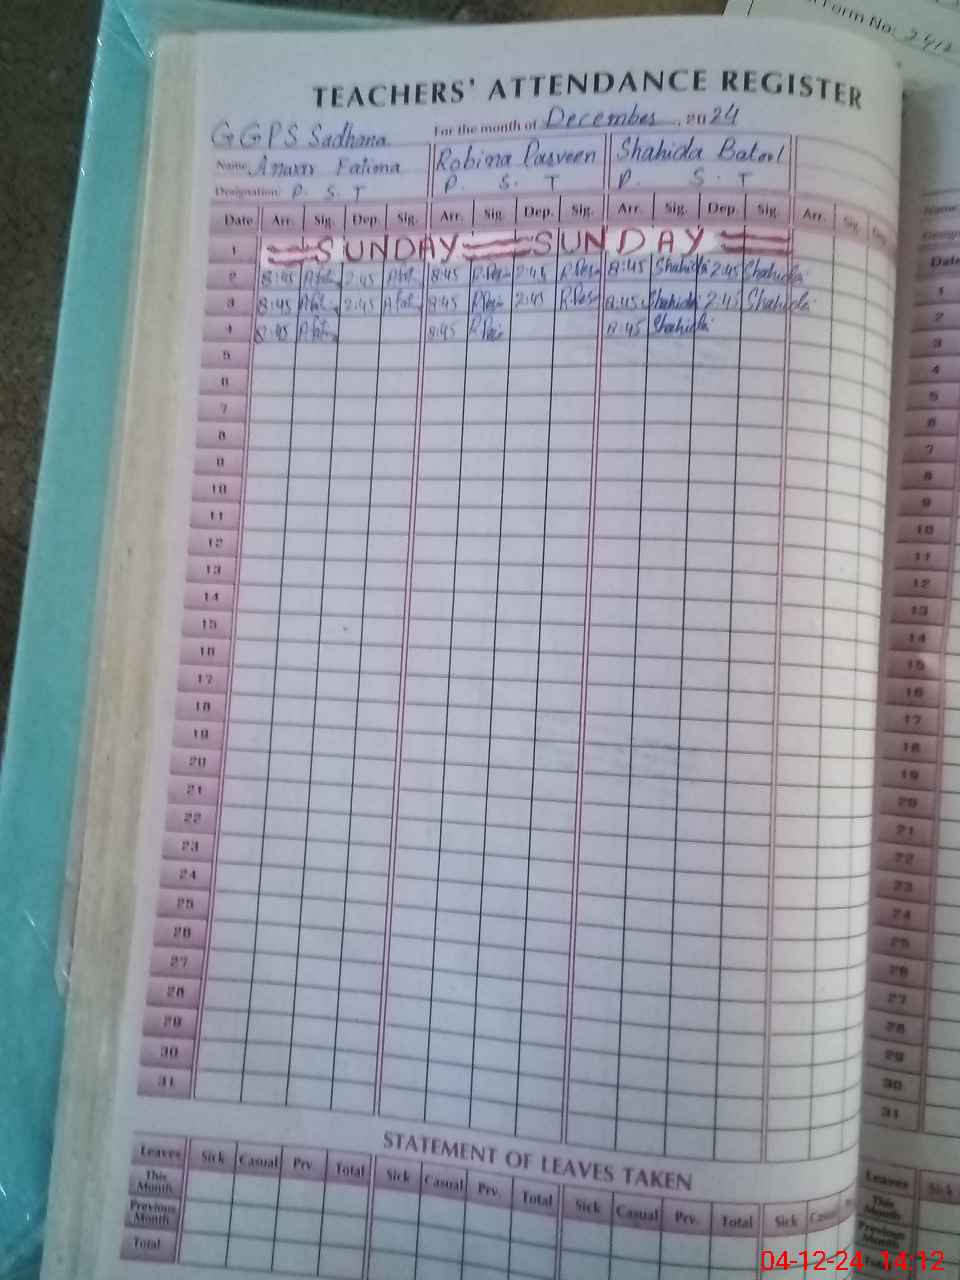 Form No. 2412
TEACHERS' ATTENDANCE REGISTER
GGPS Sadhana For the month of December, 2024
Name Anwar Fatima Robina Parveen Shahida Batool
Designation P. S. T P. S. T P. S. T
Date Arr. Sig. Dep. Sig. Arr. Sig. Dep. Sig. Arr. Sig. Dep. Sig. Arr. Sig.
1 SUNDAY SUNDAY
2 8:45 2:45 8:45 2:45 8:45 Shahida 2:45 Shahida
3 8:45 2:45 8:45 2:45 8:45 Shahida 2:45 Shahida
4 8:45 8:45 8:45 Shahida
5
6
7
8
9
10
11
12
13
14
15
16
17
18
19
20
21
22
23
24
25
26
27
28
29
30
31
STATEMENT OF LEAVES TAKEN
Leaves Sick Casual Prv. Total Sick Casual Prv. Total Sick Casual Prv. Total Sick
This Month
Previous Month
Total
Name
Date
1
2
3
4
5
6
7
8
9
10
11
12
13
14
15
16
17
18
19
20
21
22
23
24
25
26
27
28
29
30
31
Leaves Sick
This Month
Previous Month
04-12-24 14:12